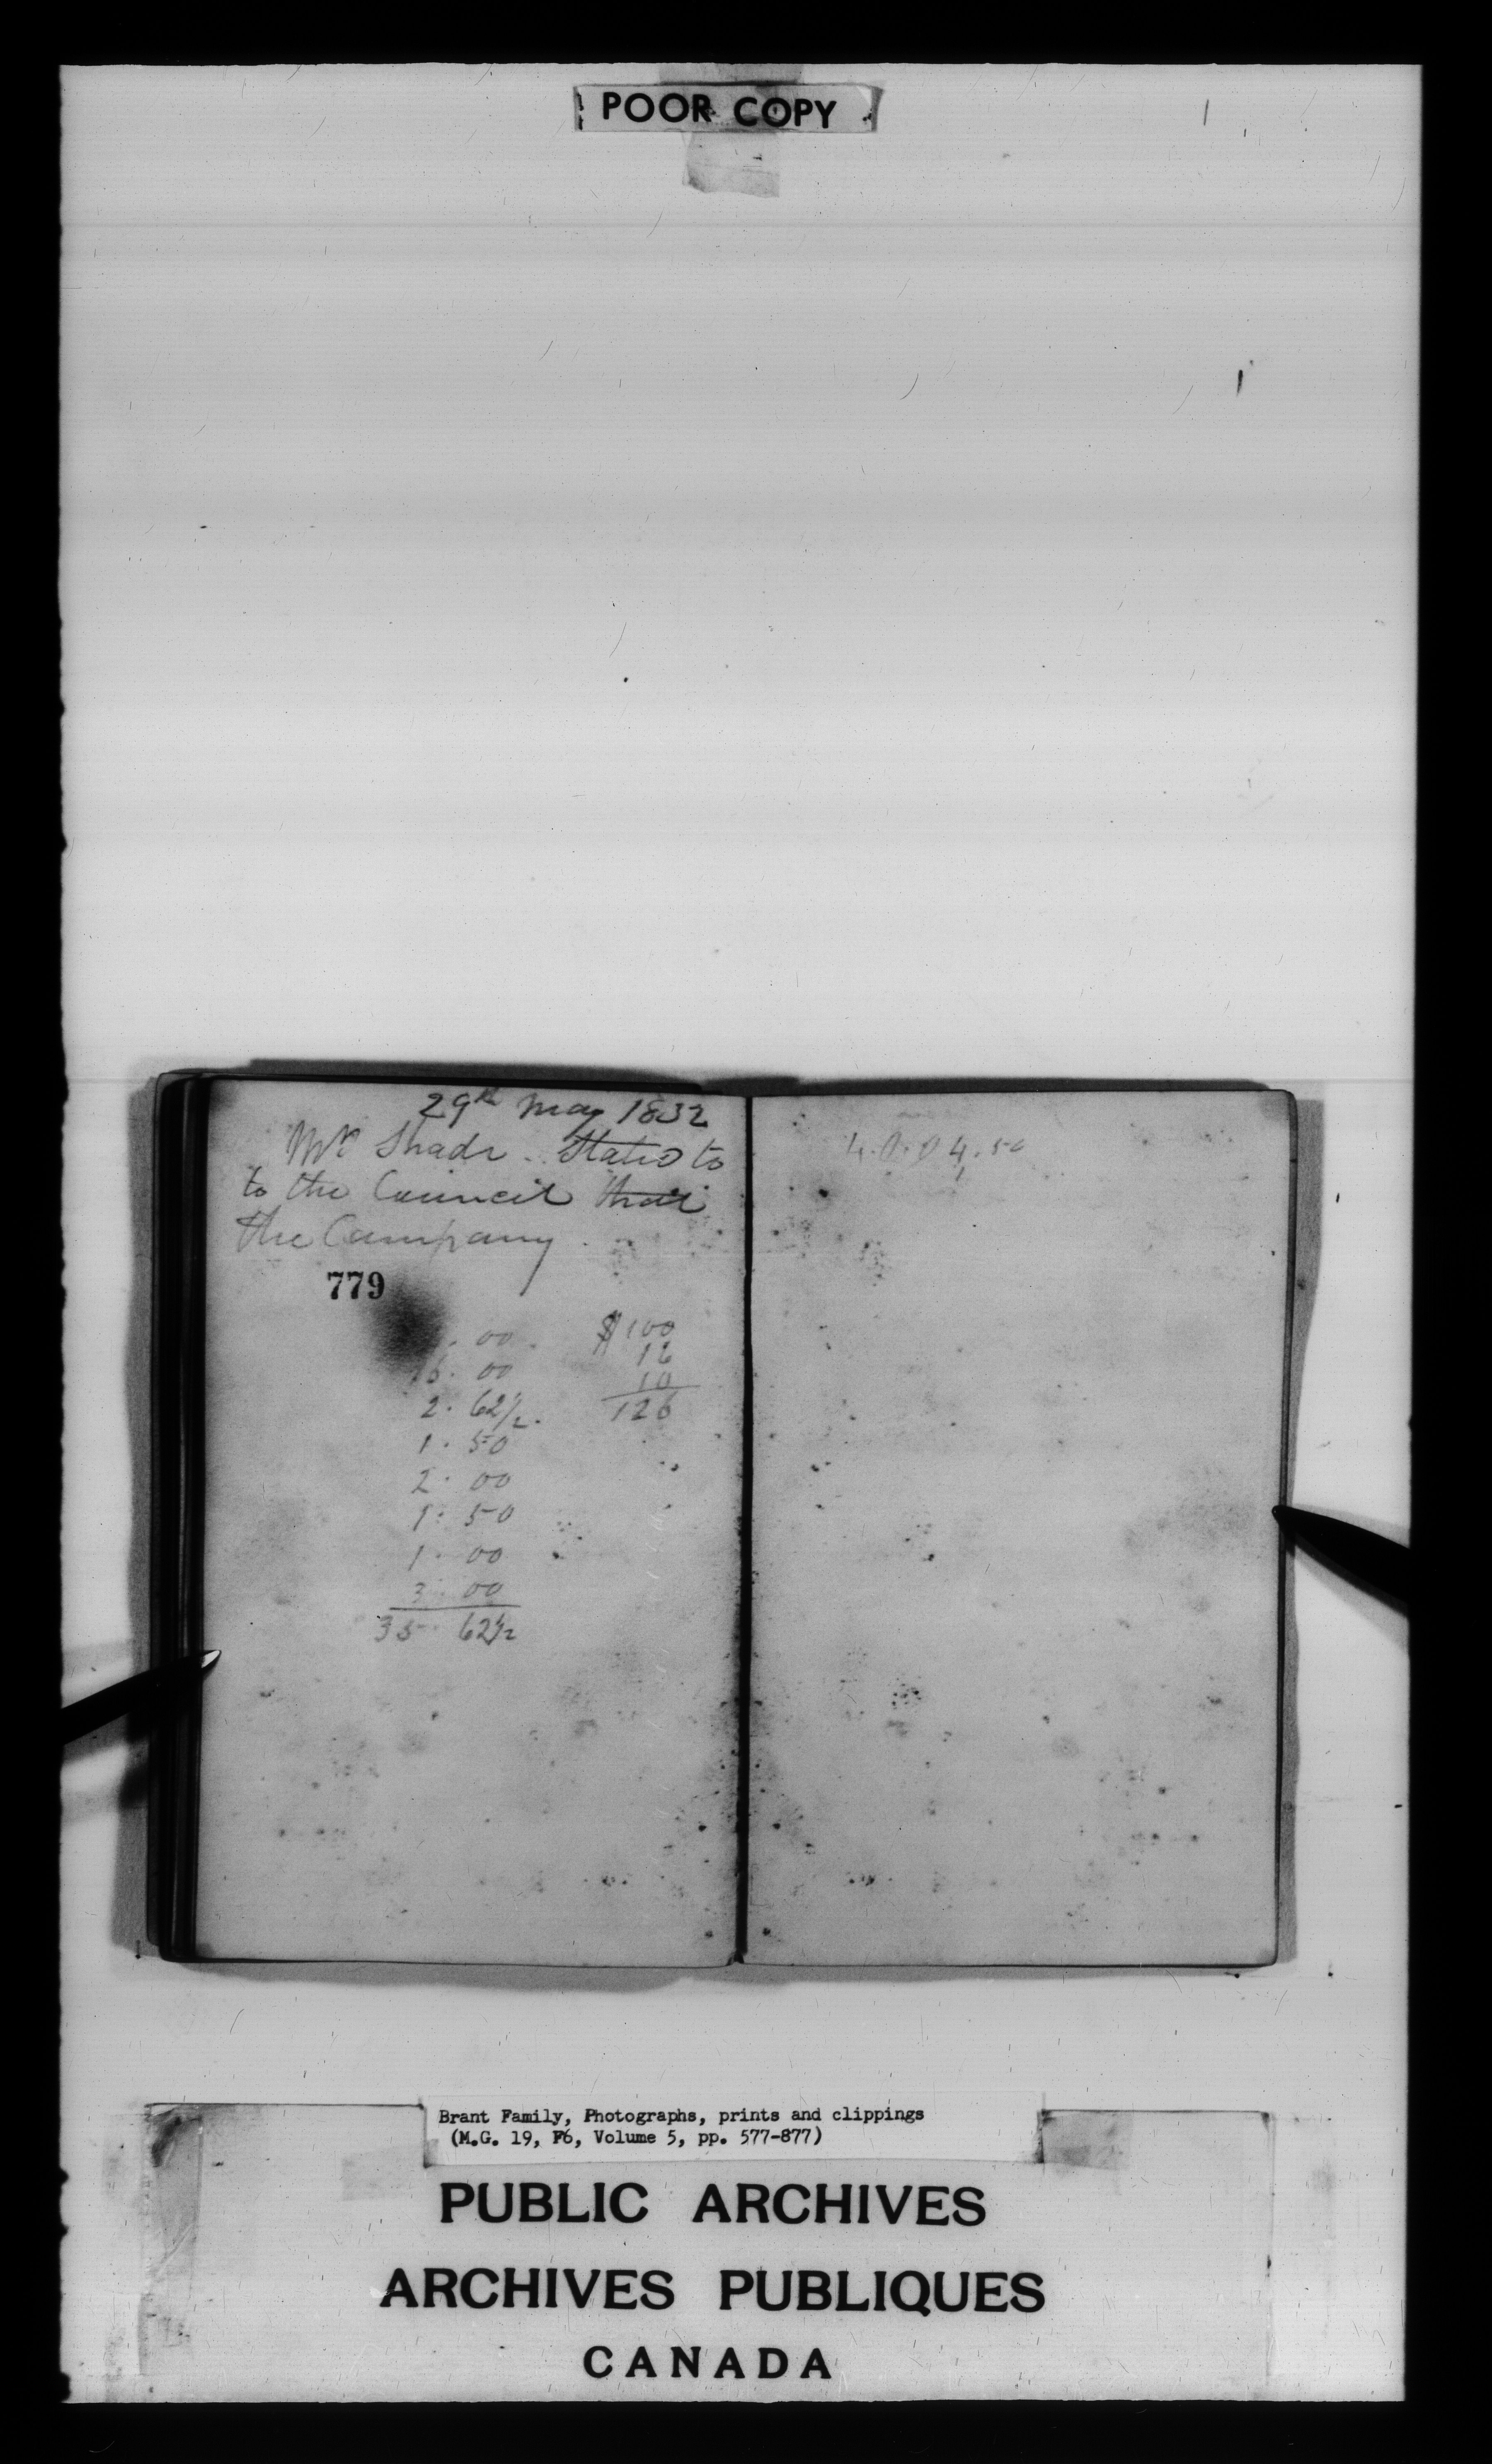 POOR COPY
29th May 1832
Mr Shade. Stated to
to the Council that
the Company.
779
. 00.
6. 00
2. 62 1/2.
1. 50
2. 00
1. 50
1. 00
3. 00
35. 62 1/2
$100
16
10
126
4.50
Brant Family, Photographs, prints and clippings
(M.G. 19, F6, Volume 5, pp. 577-877)
PUBLIC ARCHIVES
ARCHIVES PUBLIQUES
CANADA